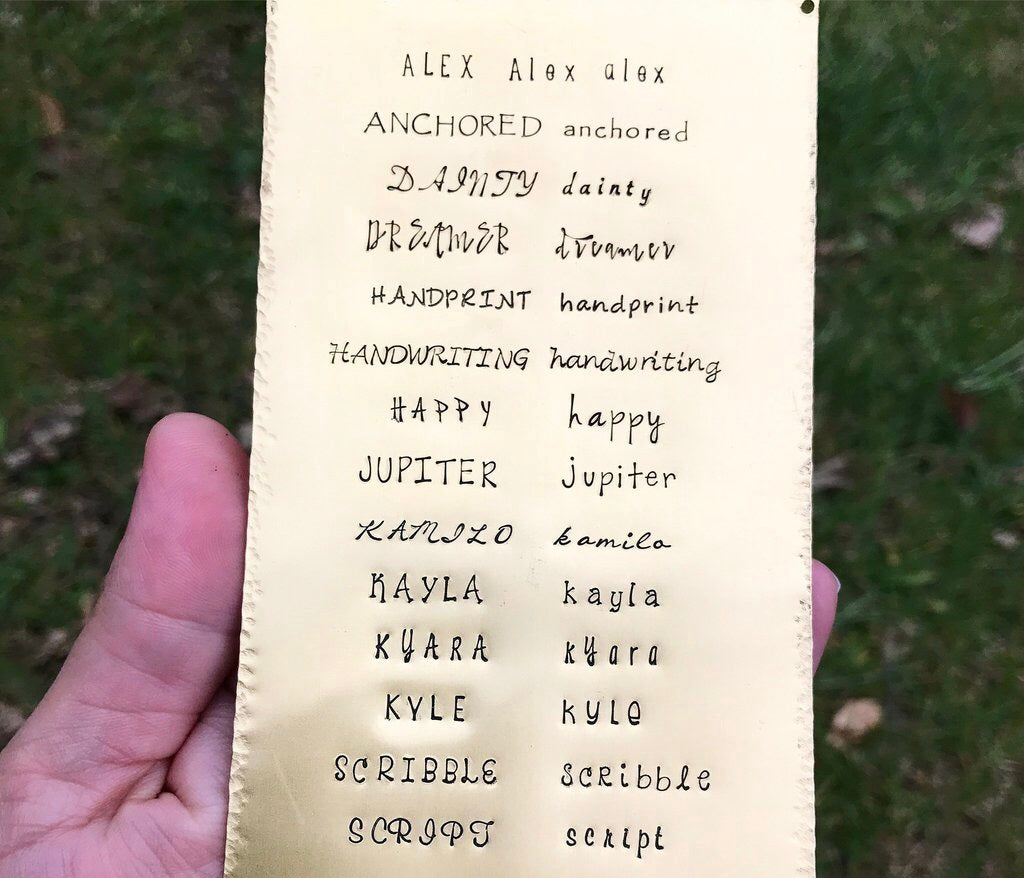 ALEX Alex alex
ANCHORED anchored
DAINTY dainty
DREAMER dreamer
HANDPRINT handprint
HANDWRITING handwriting
HAPPY happy
JUPITER jupiter
KAMILO kamilo
KAYLA kayla
KYARA kyara
KYLE kyle
SCRIBBLE scribble
SCRIPT script